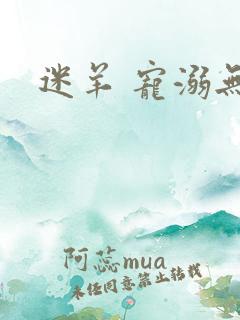 迷羊 寵溺無
阿蕊mua
未经同意禁止转载